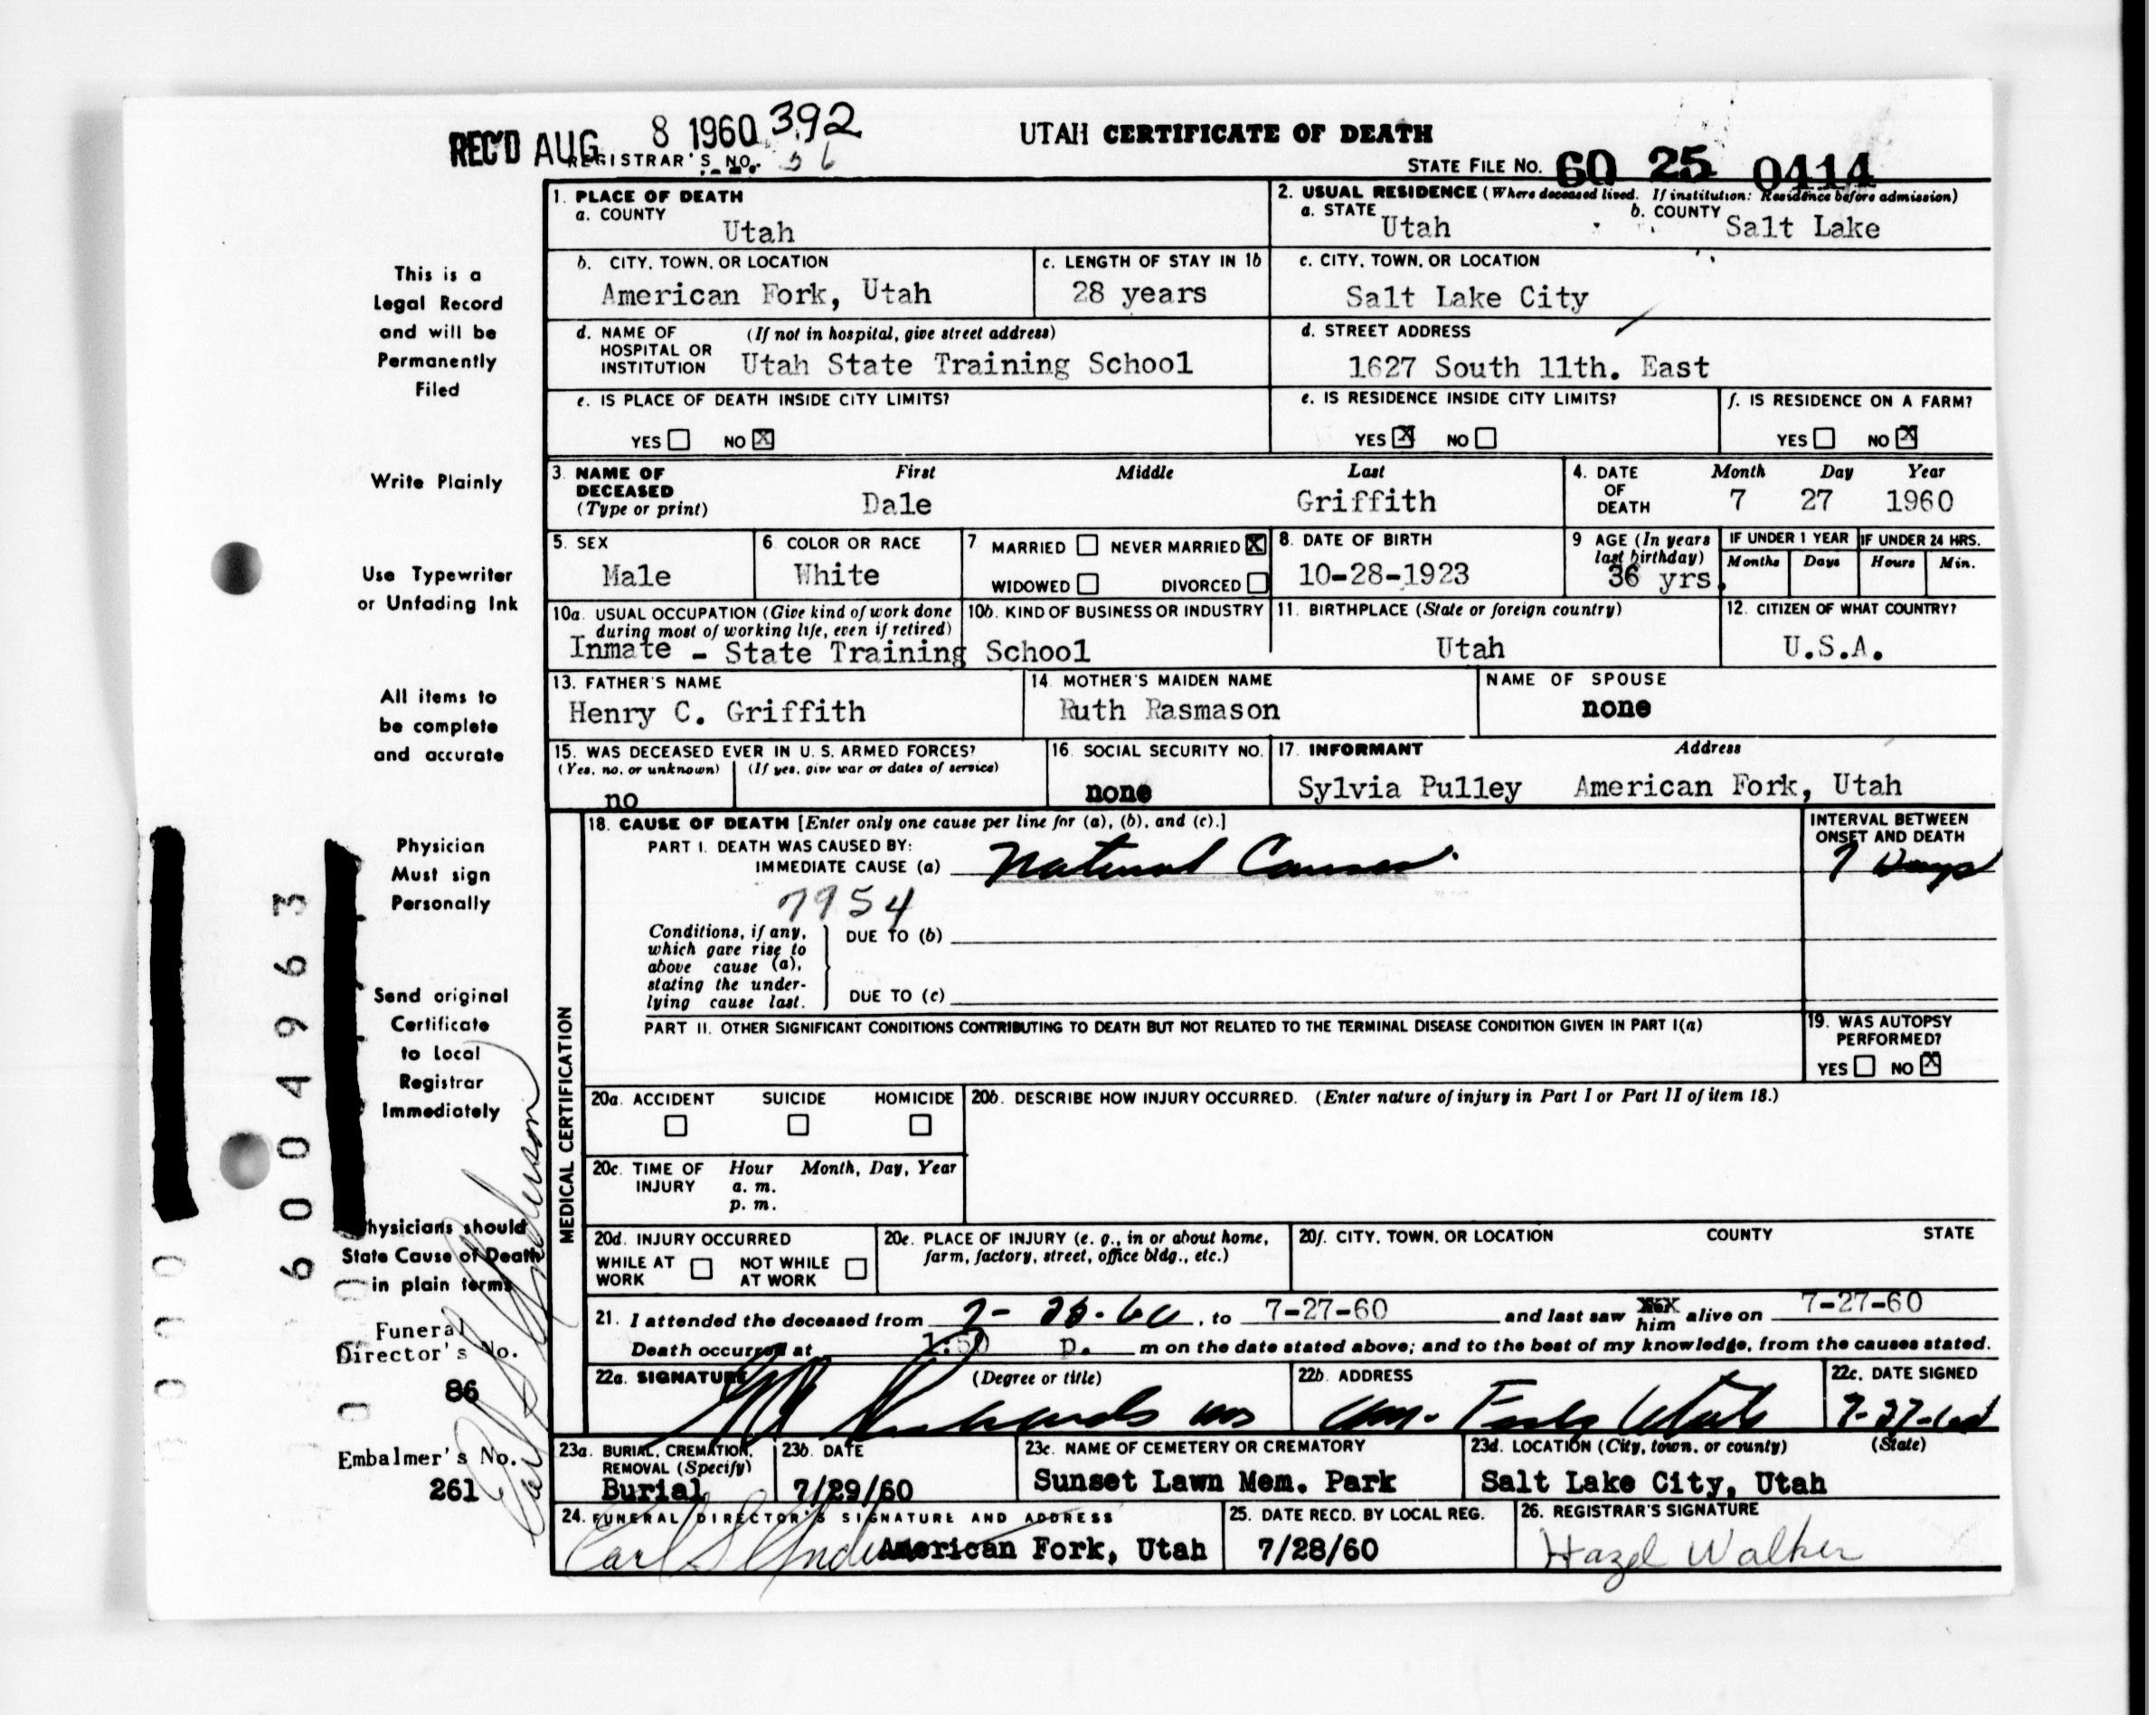 REC'D AUG 8 1960 392
REGISTRAR'S NO. 56
UTAH CERTIFICATE OF DEATH
STATE FILE NO. 60 25 0414
This is a
Legal Record
and will be
Permanently
Filed
Write Plainly
Use Typewriter
or Unfading Ink
All items to
be complete
and accurate
Physician
Must sign
Personally
Send original
Certificate
to Local
Registrar
Immediately
hysicians should
State Cause of Death
in plain terms
Funeral
Director's No.
86
Embalmer's No.
261
6004963
1. PLACE OF DEATH
a. COUNTY
Utah
2. USUAL RESIDENCE (Where deceased lived. If institution: Residence before admission)
a. STATE Utah b. COUNTY Salt Lake
b. CITY, TOWN, OR LOCATION
American Fork, Utah
c. LENGTH OF STAY IN 1b
28 years
c. CITY, TOWN, OR LOCATION
Salt Lake City
d. NAME OF HOSPITAL OR INSTITUTION (If not in hospital, give street address)
Utah State Training School
d. STREET ADDRESS
1627 South 11th. East
e. IS PLACE OF DEATH INSIDE CITY LIMITS?
YES NO X
e. IS RESIDENCE INSIDE CITY LIMITS?
YES X NO
f. IS RESIDENCE ON A FARM?
YES NO X
3. NAME OF DECEASED (Type or print) First Middle Last
Dale Griffith
4. DATE OF DEATH Month Day Year
7 27 1960
5. SEX
Male
6. COLOR OR RACE
White
7 MARRIED NEVER MARRIED X
WIDOWED DIVORCED
8. DATE OF BIRTH
10-28-1923
9 AGE (In years last birthday)
36 yrs.
IF UNDER 1 YEAR IF UNDER 24 HRS.
Months Days Hours Min.
10a. USUAL OCCUPATION (Give kind of work done during most of working life, even if retired)
10b. KIND OF BUSINESS OR INDUSTRY
Inmate - State Training School
11. BIRTHPLACE (State or foreign country)
Utah
12. CITIZEN OF WHAT COUNTRY?
U.S.A.
13. FATHER'S NAME
Henry C. Griffith
14. MOTHER'S MAIDEN NAME
Ruth Rasmason
NAME OF SPOUSE
none
15. WAS DECEASED EVER IN U. S. ARMED FORCES?
(Yes, no, or unknown) (If yes, give war or dates of service)
no
16. SOCIAL SECURITY NO.
none
17. INFORMANT Address
Sylvia Pulley American Fork, Utah
MEDICAL CERTIFICATION
18. CAUSE OF DEATH [Enter only one cause per line for (a), (b), and (c).]
PART I. DEATH WAS CAUSED BY:
IMMEDIATE CAUSE (a) Natural Causes.
INTERVAL BETWEEN
ONSET AND DEATH
7 Days
7954
Conditions, if any,
which gave rise to
above cause (a),
stating the under-
lying cause last.
DUE TO (b)
DUE TO (c)
PART II. OTHER SIGNIFICANT CONDITIONS CONTRIBUTING TO DEATH BUT NOT RELATED TO THE TERMINAL DISEASE CONDITION GIVEN IN PART I(a)
19. WAS AUTOPSY
PERFORMED?
YES NO X
20a. ACCIDENT SUICIDE HOMICIDE
20b. DESCRIBE HOW INJURY OCCURRED. (Enter nature of injury in Part I or Part II of item 18.)
20c. TIME OF INJURY Hour Month, Day, Year
a. m.
p. m.
20d. INJURY OCCURRED
WHILE AT WORK NOT WHILE AT WORK
20e. PLACE OF INJURY (e. g., in or about home,
farm, factory, street, office bldg., etc.)
20f. CITY, TOWN, OR LOCATION COUNTY STATE
21. I attended the deceased from 7-26-60, to 7-27-60 and last saw him alive on 7-27-60
Death occurred at 1:50 p. m on the date stated above; and to the best of my knowledge, from the causes stated.
22a. SIGNATURE (Degree or title)
Richards MD
22b. ADDRESS
Am. Fork Utah
22c. DATE SIGNED
7-27-60
23a. BURIAL, CREMATION, REMOVAL (Specify)
Burial
23b. DATE
7/29/60
23c. NAME OF CEMETERY OR CREMATORY
Sunset Lawn Mem. Park
23d. LOCATION (City, town, or county) (State)
Salt Lake City, Utah
24. FUNERAL DIRECTOR'S SIGNATURE AND ADDRESS
Earl S Anderson American Fork, Utah
25. DATE RECD. BY LOCAL REG.
7/28/60
26. REGISTRAR'S SIGNATURE
Hazel Walker
Earl S Anderson